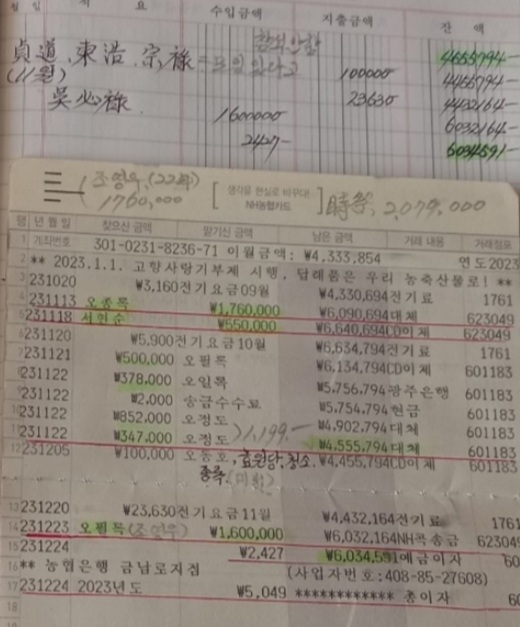 월 일 적 요 수입금액 지출금액 잔 액
4655794-
貞道, 東浩, 宗祿 100000 4455794-
(11월) 23630 4432164-
吳必祿 1600000 6032164-
2427- 6034591-
조영우, (22年)
1760,000
[ 생각을 현실로 바꾸다! NH농협카드 ] 時祭, 2,079,000
행 년월일 찾으신 금액 맡기신 금액 남은 금액 거래 내용 거래점포
1 계좌번호 301-0231-8236-71 이월금액: ₩4,333,854 연도2023
2 ** 2023.1.1. 고향사랑기부제 시행, 답례품은 우리 농축산물로! **
3 231020 ₩3,160 전기요금09월 ₩4,330,694 전기료 1761
4 231113 오종록 ₩1,760,000 ₩6,090,694 대체 623049
5 231118 서인순 ₩550,000 ₩6,640,694 CD이체 623049
6 231120 ₩5,900 전기요금10월 ₩6,634,794 전기료 1761
7 231121 ₩500,000 오필록 ₩6,134,794 CD이체 601183
8 231122 ₩378,000 오일록 ₩5,756,794 광주은행 601183
9 231122 ₩2,000 송금수수료 ₩5,754,794 현금 601183
10 231122 ₩852,000 오정도 ₩4,902,794 대체 601183
11 231122 ₩347,000 오정도 )1,199.- ₩4,555,794 대체 601183
12 231205 ₩100,000 오동호, 효원당, 청소. ₩4,455,794 CD이체 601183
종록,
13 231220 ₩23,630 전기요금11월 ₩4,432,164 전기료 1761
14 231223 오필록 (조영우) ₩1,600,000 ₩6,032,164 NH콕송금 623049
15 231224 ₩2,427 ₩6,034,591 예금이자 60
16 ** 농협은행 금남로지점 (사업자번호:408-85-27608)
17 231224 2023년도 ₩5,049 ************ 총이자 60
18